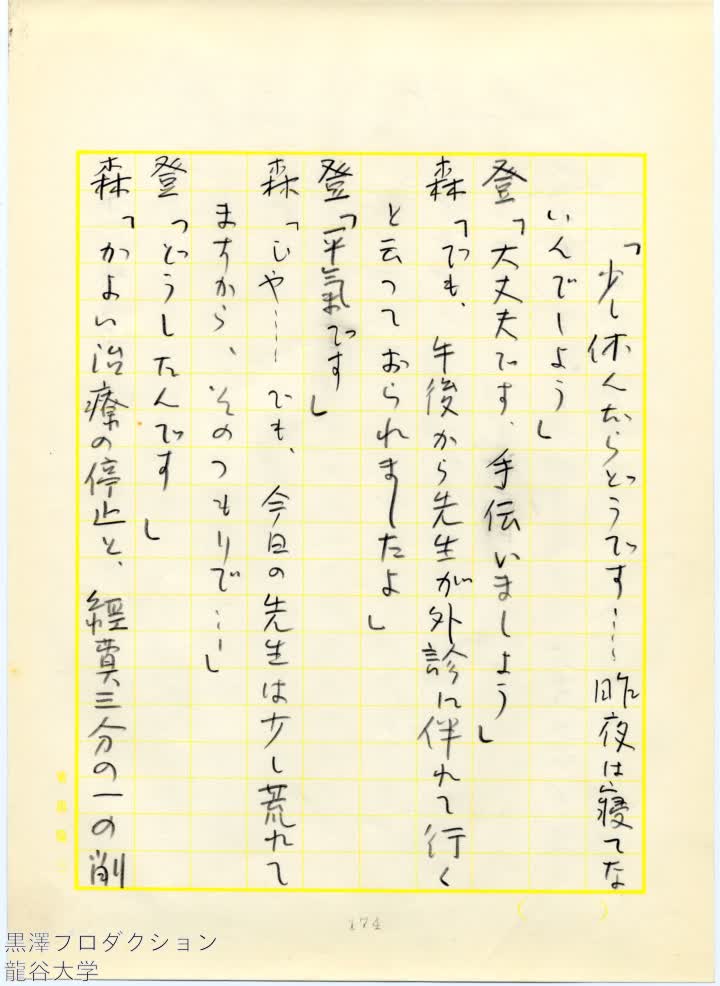 「少し休んだらどうです……昨夜は寝てな
いんでしよう」
登「大丈夫です、手伝いましよう」
森「でも、午後から先生が外診に伴れて行く
と云つておられましたよ」
登「平氣です」
森「じや……でも、今日の先生は少し荒れて
ますから、そのつもりで……」
登「どうしたんです」
森「かよい治療の停止と、経費三分の一の削
174
黒澤プロダクション
龍谷大学